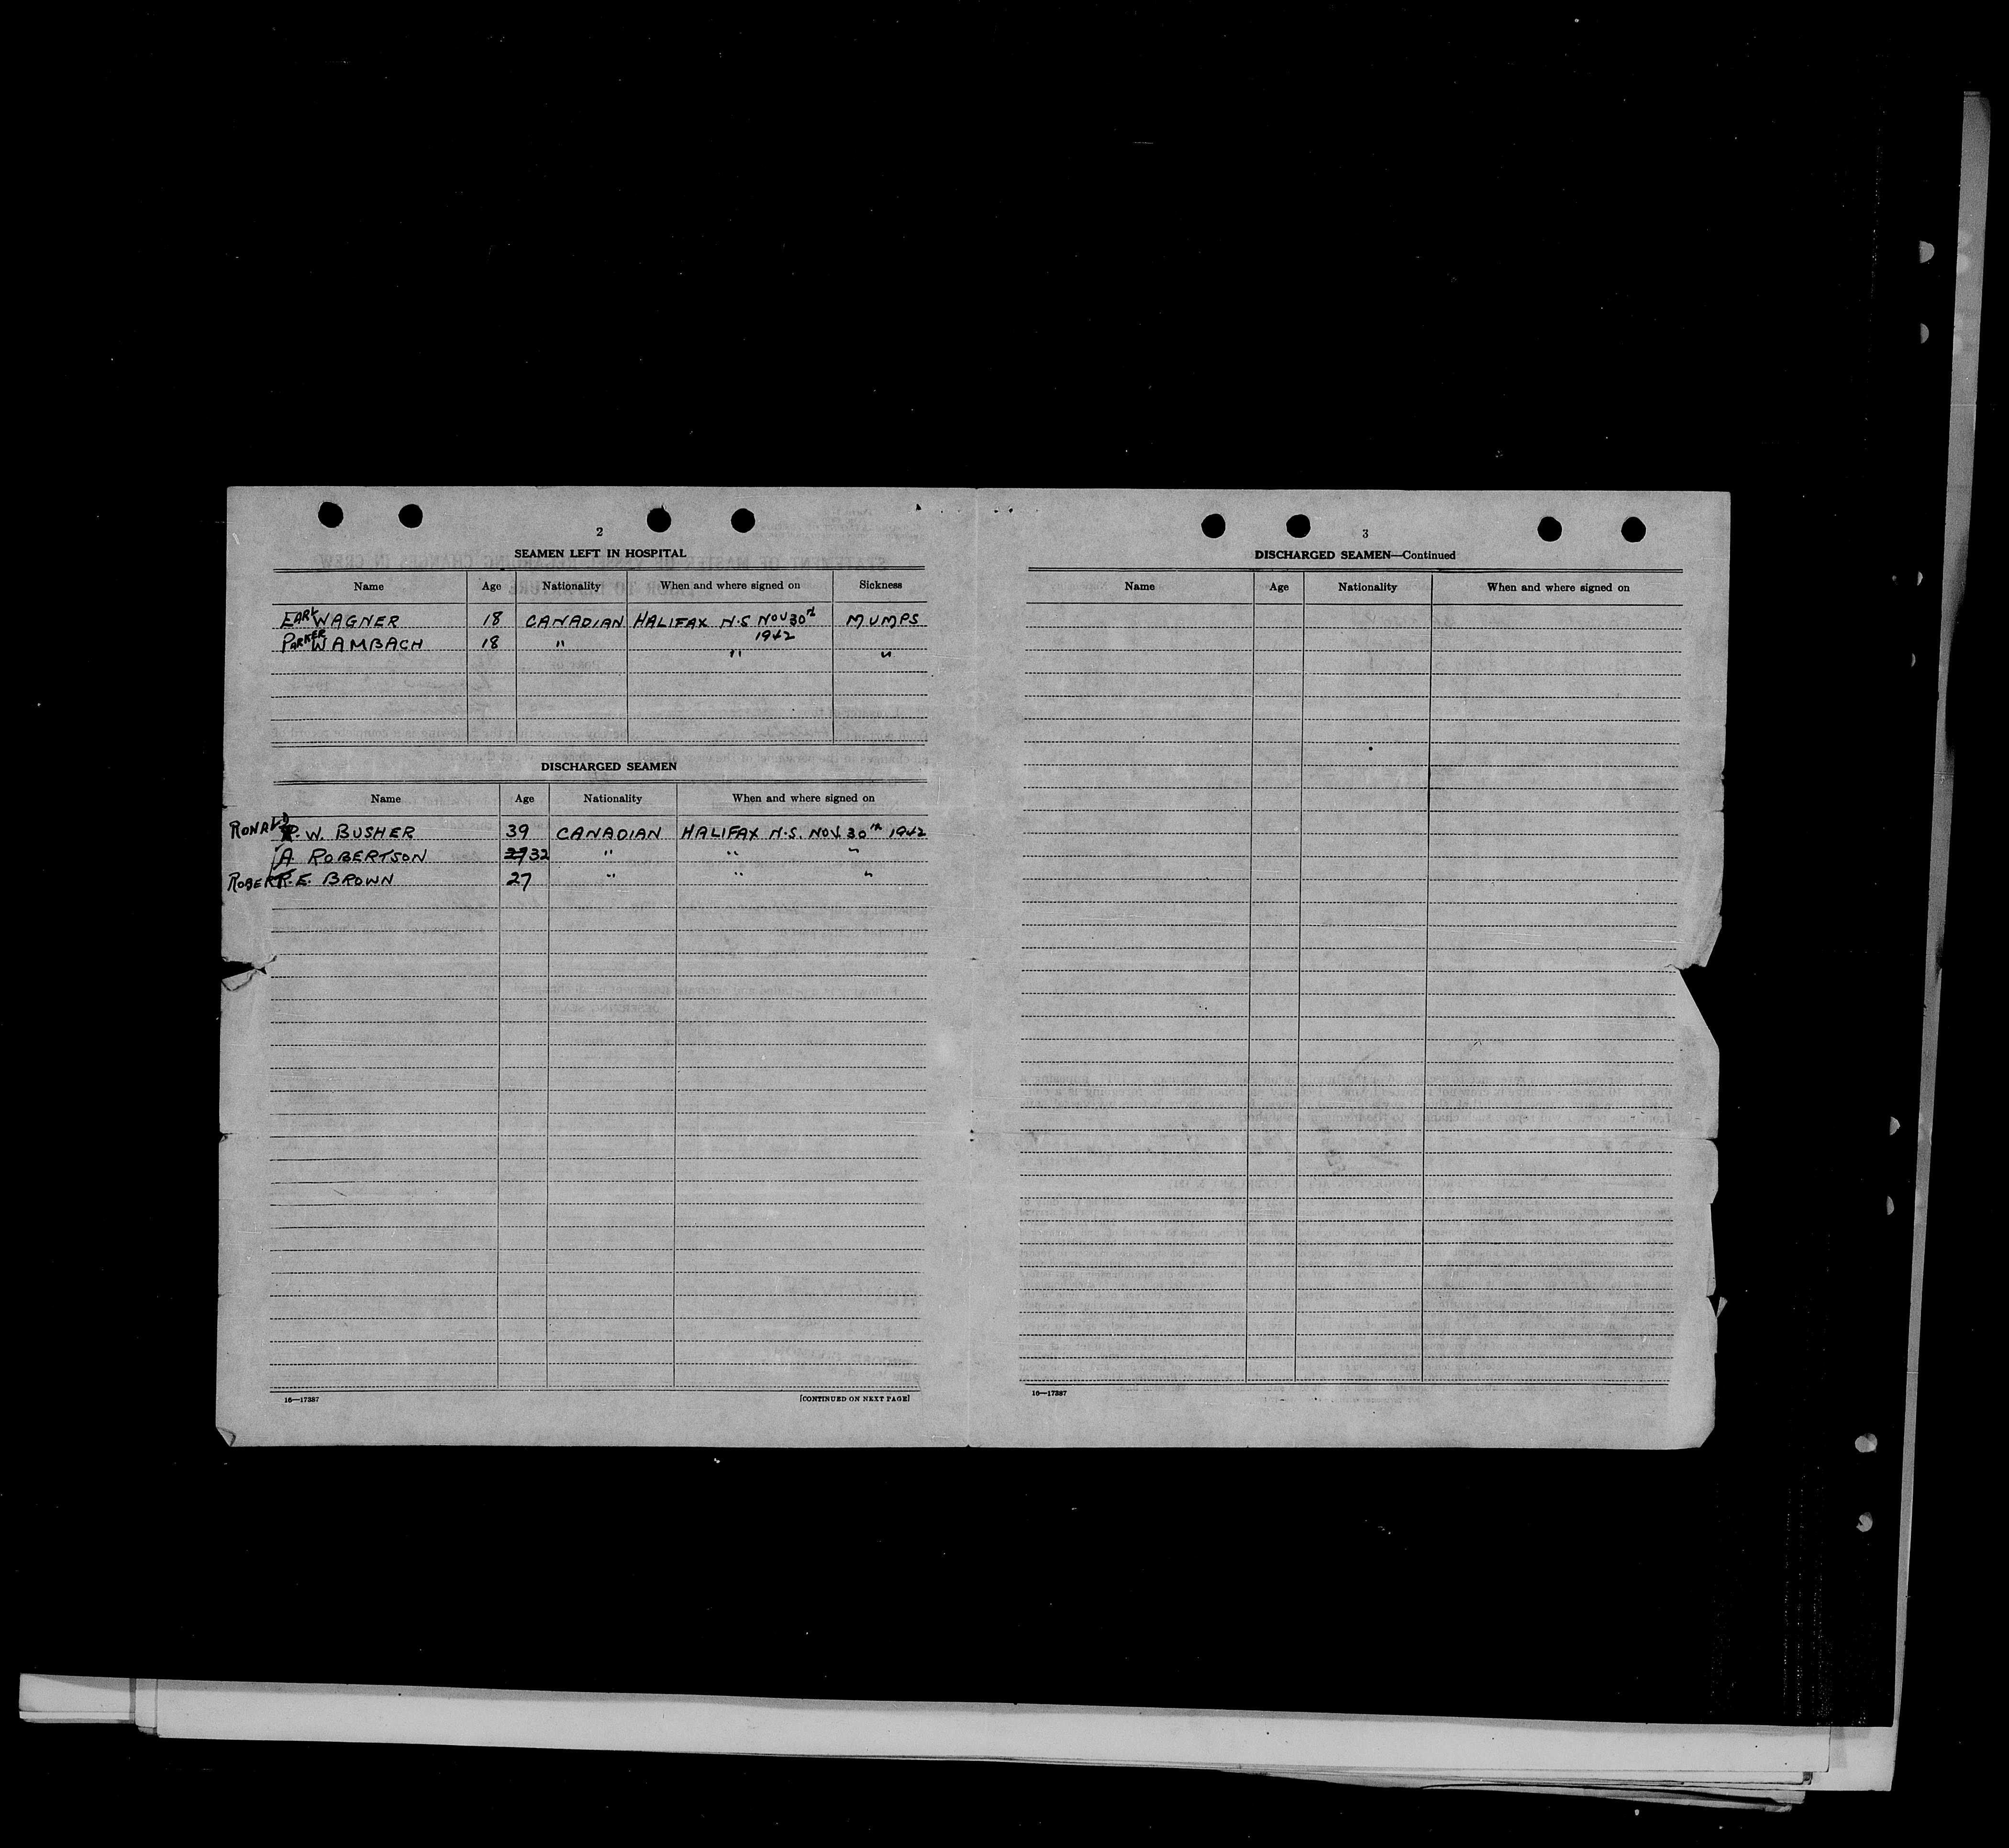 2
SEAMEN LEFT IN HOSPITAL
Name Age Nationality When and where signed on Sickness
EARL WAGNER 18 CANADIAN HALIFAX N.S NOV 30th 1942 MUMPS
PARKER WAMBACH 18 " " "
DISCHARGED SEAMEN
Name Age Nationality When and where signed on
RONALD R. W. BUSHER 39 CANADIAN HALIFAX N.S. NOV. 30th 1942
A ROBERTSON 27 32 " " "
ROBERT R. E. BROWN 27 " " "
16—17387 [CONTINUED ON NEXT PAGE]
3
DISCHARGED SEAMEN—Continued
Name Age Nationality When and where signed on
16—17387